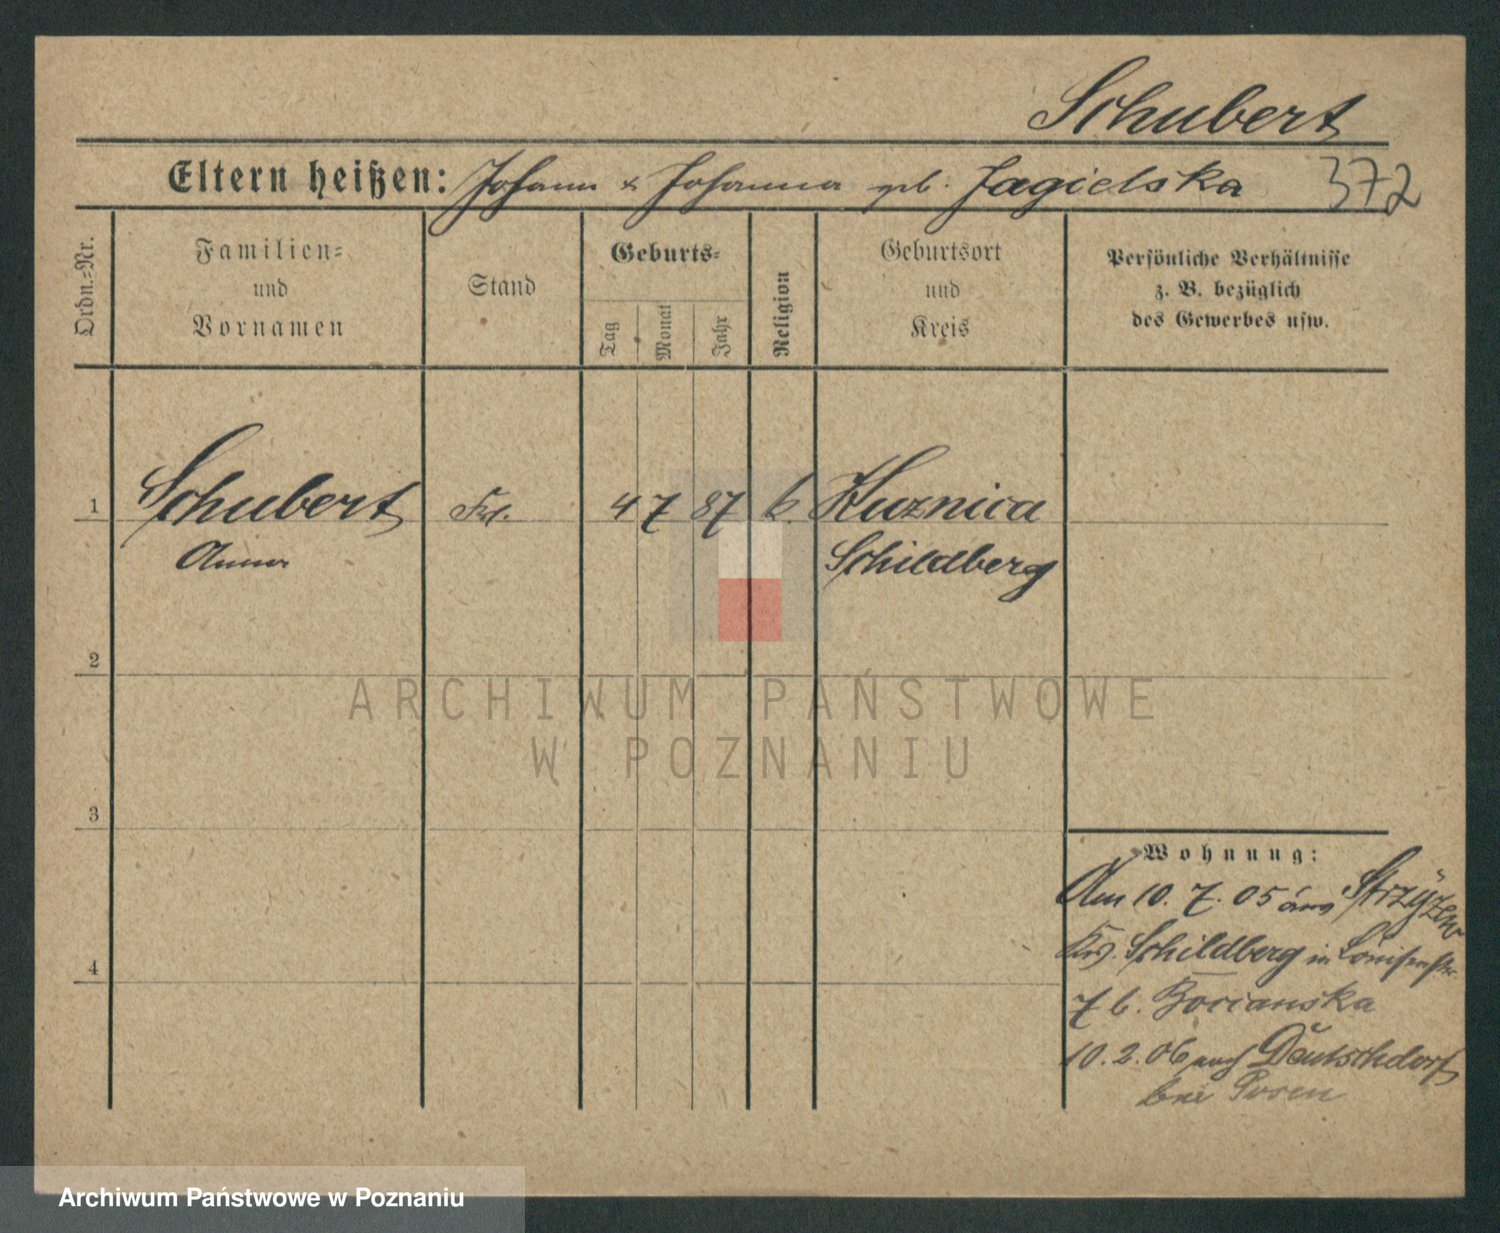 Schubert
Eltern heißen: Johann & Johanna geb. Jagielska 372
Ordn.=Nr.
Familien=
und
Vornamen
Stand
Geburts=
Tag
Monat
Jahr
Religion
Geburtsort
und
Kreis
Persönliche Verhältnisse
z. B. bezüglich
des Gewerbes usw.
1 Schubert Frl. 4 7 87 k. Kuznica
Anna Schildberg
2
3
4
Wohnung:
Am 10. 7. 05 aus Strzyżew
Krs. Schildberg in Louisenstr.
7 b. Bocianska
10. 2. 06 nach Deutschdorf
bei Posen
ARCHIWUM PAŃSTWOWE
W POZNANIU
Archiwum Państwowe w Poznaniu